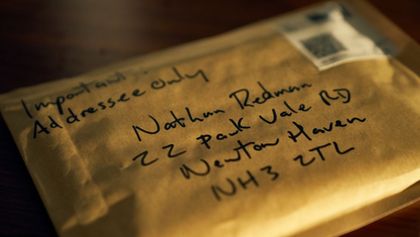 Important:
Addressee only
Nathan Redman
22 Park Vale RD
Newton Haven
NH3 2TL